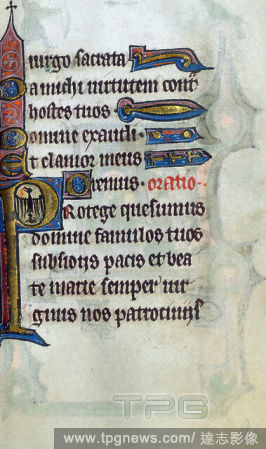 uirgo sacrata
Da michi uirtutem cont
hostes tuos
Domine exaudi
Et clamor meus
Oremus. oratio.
Protege quesumus
domine famulos tuos
subsidijs pacis et bea
te marie semper uir
ginis nos patrocinijs
TPG
www.tpgnews.com/ 達志影像